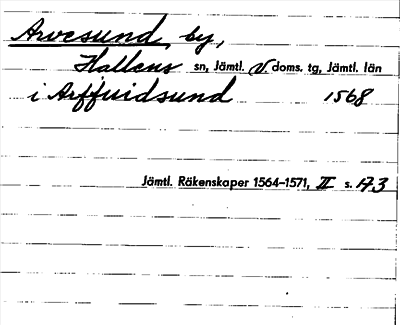 Arvesund, by,
Hallens sn, Jämtl. V. doms. tg, Jämtl. län
i Arffuidsund 1568
Jämtl. Räkenskaper 1564–1571, II s. 173